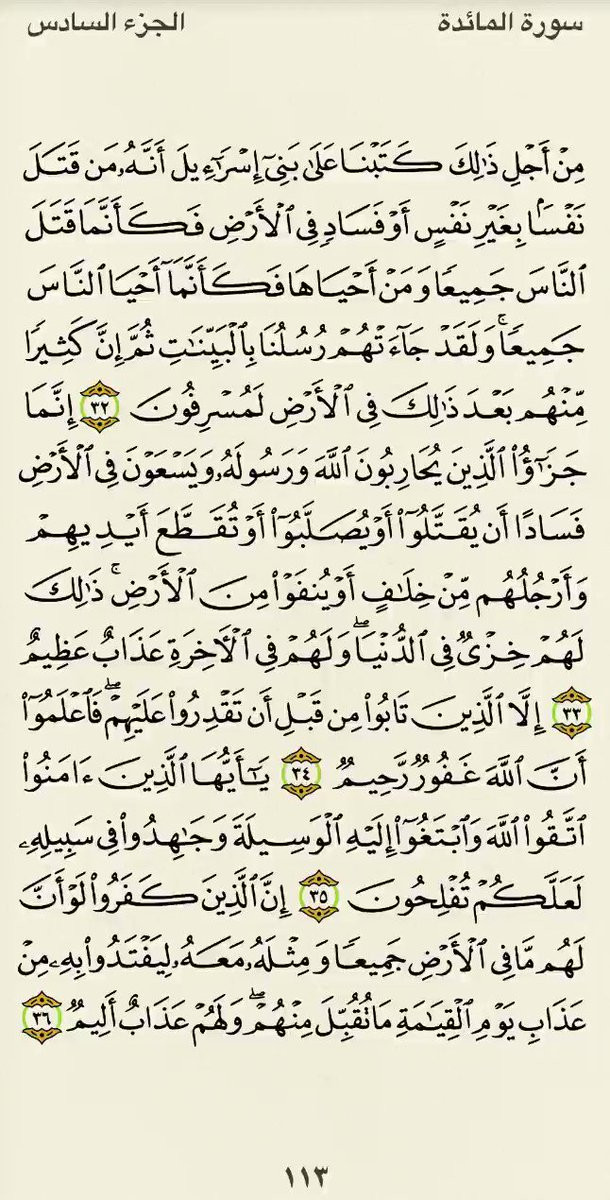 سورة المائدة الجزء السادس
مِنْ أَجْلِ ذَٰلِكَ كَتَبْنَا عَلَىٰ بَنِىٓ إِسْرَٰٓءِيلَ أَنَّهُۥ مَن قَتَلَ
نَفْسًۢا بِغَيْرِ نَفْسٍ أَوْ فَسَادٍ فِى ٱلْأَرْضِ فَكَأَنَّمَا قَتَلَ
ٱلنَّاسَ جَمِيعًا وَمَنْ أَحْيَاهَا فَكَأَنَّمَآ أَحْيَا ٱلنَّاسَ
جَمِيعًا ۚ وَلَقَدْ جَآءَتْهُمْ رُسُلُنَا بِٱلْبَيِّنَٰتِ ثُمَّ إِنَّ كَثِيرًا
مِّنْهُم بَعْدَ ذَٰلِكَ فِى ٱلْأَرْضِ لَمُسْرِفُونَ ٣٢ إِنَّمَا
جَزَٰٓؤُا۟ ٱلَّذِينَ يُحَارِبُونَ ٱللَّهَ وَرَسُولَهُۥ وَيَسْعَوْنَ فِى ٱلْأَرْضِ
فَسَادًا أَن يُقَتَّلُوٓا۟ أَوْ يُصَلَّبُوٓا۟ أَوْ تُقَطَّعَ أَيْدِيهِمْ
وَأَرْجُلُهُم مِّنْ خِلَٰفٍ أَوْ يُنفَوْا۟ مِنَ ٱلْأَرْضِ ۚ ذَٰلِكَ
لَهُمْ خِزْىٌ فِى ٱلدُّنْيَا ۖ وَلَهُمْ فِى ٱلْـَٔاخِرَةِ عَذَابٌ عَظِيمٌ
٣٣ إِلَّا ٱلَّذِينَ تَابُوا۟ مِن قَبْلِ أَن تَقْدِرُوا۟ عَلَيْهِمْ ۖ فَٱعْلَمُوٓا۟
أَنَّ ٱللَّهَ غَفُورٌ رَّحِيمٌ ٣٤ يَٰٓأَيُّهَا ٱلَّذِينَ ءَامَنُوا۟
ٱتَّقُوا۟ ٱللَّهَ وَٱبْتَغُوٓا۟ إِلَيْهِ ٱلْوَسِيلَةَ وَجَٰهِدُوا۟ فِى سَبِيلِهِۦ
لَعَلَّكُمْ تُفْلِحُونَ ٣٥ إِنَّ ٱلَّذِينَ كَفَرُوا۟ لَوْ أَنَّ
لَهُم مَّا فِى ٱلْأَرْضِ جَمِيعًا وَمِثْلَهُۥ مَعَهُۥ لِيَفْتَدُوا۟ بِهِۦ مِنْ
عَذَابِ يَوْمِ ٱلْقِيَٰمَةِ مَا تُقُبِّلَ مِنْهُمْ ۖ وَلَهُمْ عَذَابٌ أَلِيمٌ ٣٦
١١٣